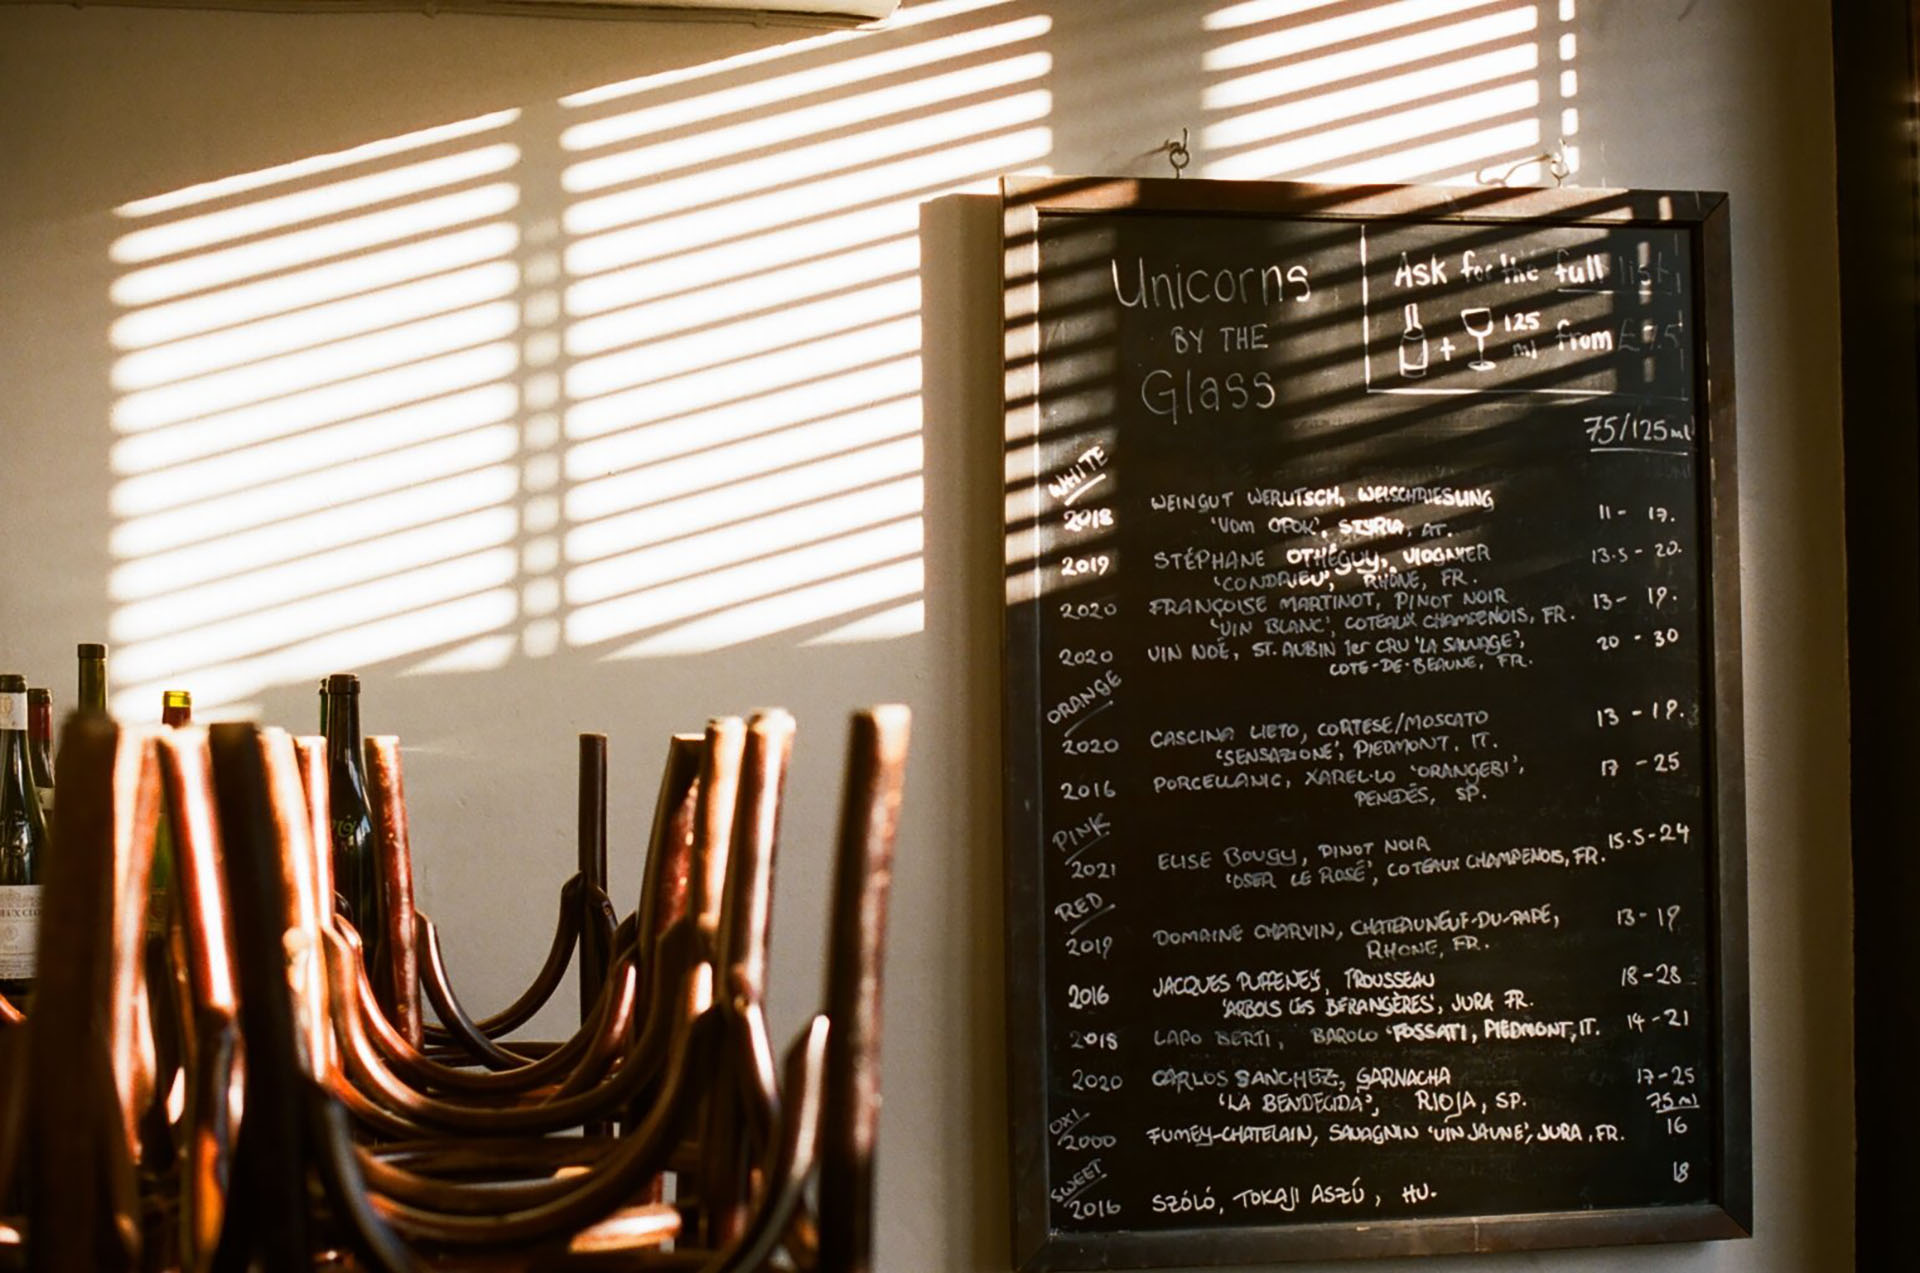 Unicorns
BY THE
Glass
Ask for the full list
+ 125 ml from £7.5
75/125ml
WHITE
2018 WEINGUT WERLITSCH, WELSCHRIESLING 11 - 17.
'VOM OPOK', STYRIA, AT.
2019 STÉPHANE OTHÉGUY, VIOGNIER 13.5 - 20.
'CONDRIEU', RHÔNE, FR.
2020 FRANÇOISE MARTINOT, PINOT NOIR 13 - 19.
'VIN BLANC', COTEAUX CHAMPENOIS, FR.
2020 VIN NOÉ, ST. AUBIN 1er CRU 'LA SAUVAGE', 20 - 30
COTE-DE-BEAUNE, FR.
ORANGE
2020 CASCINA LIETO, CORTESE/MOSCATO 13 - 19.
'SENSAZIONE', PIEDMONT, IT.
2016 PORCELLANIC, XAREL·LO 'ORANGEBI', 17 - 25
PENEDÉS, SP.
PINK
2021 ELISE BOUGY, PINOT NOIR 15.5 - 24
'OSER LE ROSÉ', COTEAUX CHAMPENOIS, FR.
RED
2019 DOMAINE CHARVIN, CHATEAUNEUF-DU-PAPE, 13 - 19
RHONE, FR.
2016 JACQUES PUFFENEY, TROUSSEAU 18 - 28
'ARBOIS LES BERANGÈRES', JURA FR.
2018 LAPO BERTI, BAROLO 'FOSSATI, PIEDMONT, IT. 14 - 21
2020 CARLOS SANCHEZ, GARNACHA 17 - 25
'LA BENDECIDA', RIOJA, SP.
75ml
OXI.
2000 FUMEY-CHATELAIN, SAVAGNIN 'VIN JAUNE', JURA, FR. 16
SWEET
2016 SZÓLÓ, TOKAJI ASZÚ, HU. 18